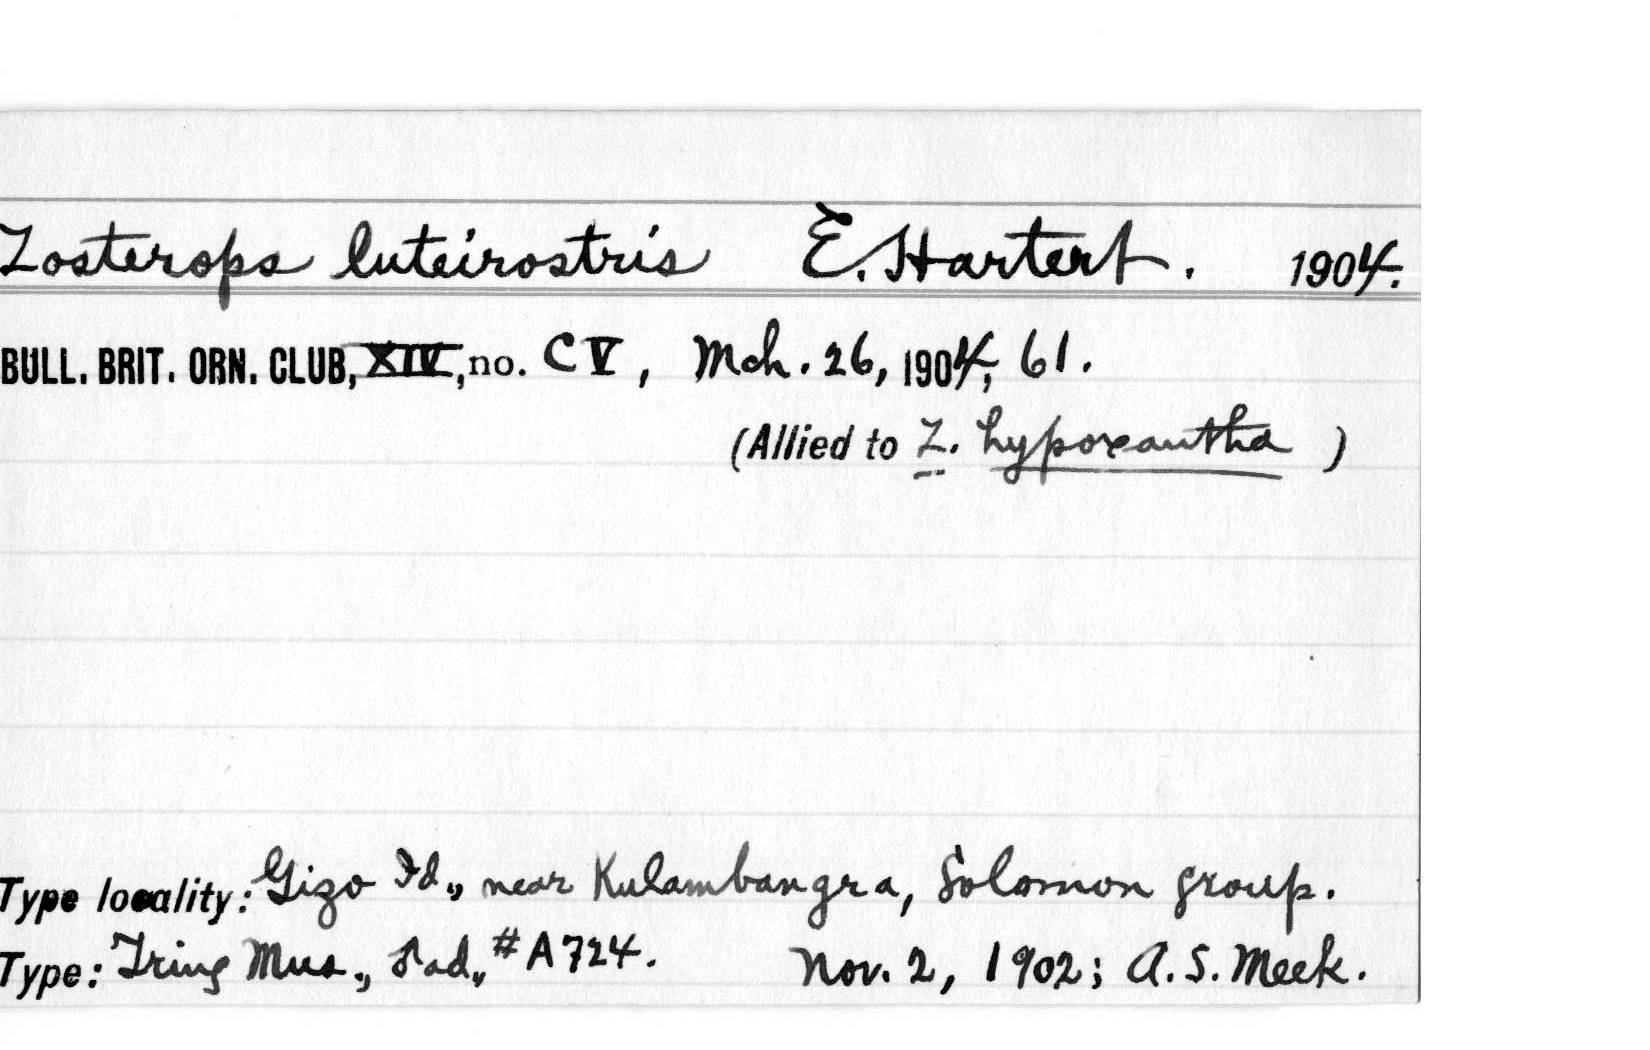 Zosterops luteirostris E. Hartert. 1904.
BULL. BRIT. ORN. CLUB, XIV, no. CV, Mch. 26, 1904, 61.
(Allied to Z. hypoxantha )
Type locality: Gizo Id., near Kulambangra, Solomon group.
Type: Tring Mus., ♂ad., #A724. Nov. 2, 1902; A.S. Meek.